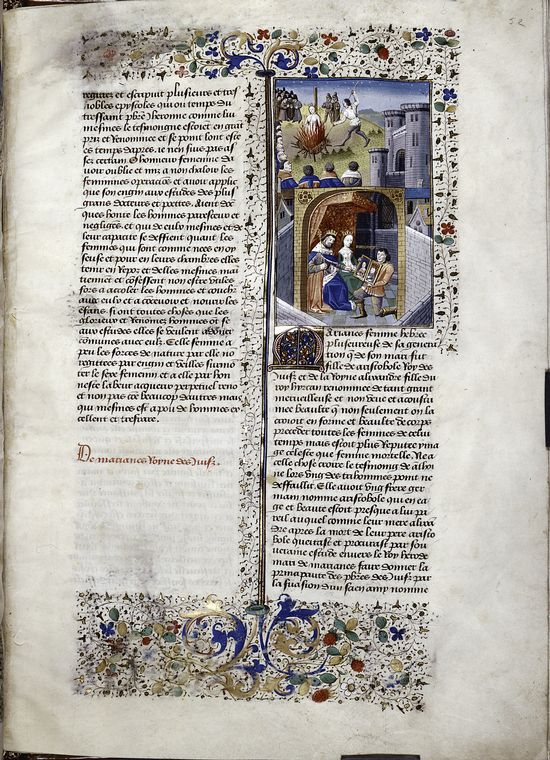 52
regretz et escripuit plusieurs et tres
nobles epystoles qui ou temps du
tressaint pbre iheronme comme lui
mesmes le tesmongne estoiet en grāt
pris et renommee et se point sont iusqs
ce temps dapres. ie nen suis pas as
sez certain. O honneur femenine da
uoir oublie et mis a nonchaloir les
femenines operacions et auoir applic
que son engin aux estudes des plus
grans docteurs et poettes. dient doc
ques honte les hommes paresseux et
negliges. et qui de eulx mesmes et de
leur capacite se deffient quant les
femmes qui sont comme nees en oy
seuse et pour en leurs chambres elles
tenir en repoz et delles mesmes mai
tiennent et cōfessent non estre utiles
fors a acoler les hommes et couch
auec eulx et a concevoir et nourir les
efans. si ont toutes choses que les
glorieux et renomez hommes ōt se
aux estudes elles se veulent adōner
communes auec eulx. Celle femme a
peu les forces de nature par elle no
regittees par engin et veilles surmō
ter le sexe feminin et a elle par hon
neste labeur acquerir perpetuel reno
et non pas cōe beaucop dautres mais
qui mesmes est a pou de hommes ex
cellent et tresrare.
De marianes royne des Juifz.
Marianes femme hebree
plus eureuse de sa genera
tion q̄ de son mari fut
fille de aristobole roy des
Juifz et de la royne alixandre fille du
roy hircan renommee de tant grant
merueilleuse et non veue et acoustu
mee beaulte q̄ non seulement on la
creoit en forme et beaulte de corps
preceder toutes les femmes de celui
temps mais estoit plus reputee yma
ge celeste que femme mortelle. Ne a
celle chose croire le tesmong de āthoi
ne lors ung des troishommes point ne
deffaillit. Elle auoit ung frere ger
main nomme aristobole qui en ea
ge et beaute estoit presque a lui pa
reil auquel comme leur mere alixā
dre apres la mort de leur pere aristo
bole querast et procurast par sou
ueraine estude enuers le roy herode
mari de marianes faire donner la
principaute des pbres des Juifz par
la suasion dun sien amy nomme